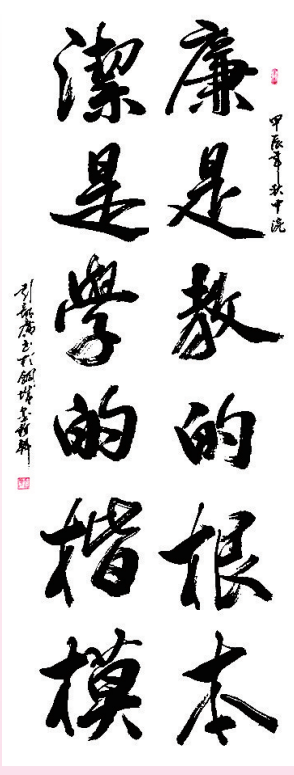 甲辰年秋中浣
廉是教的根本
潔是學的楷模